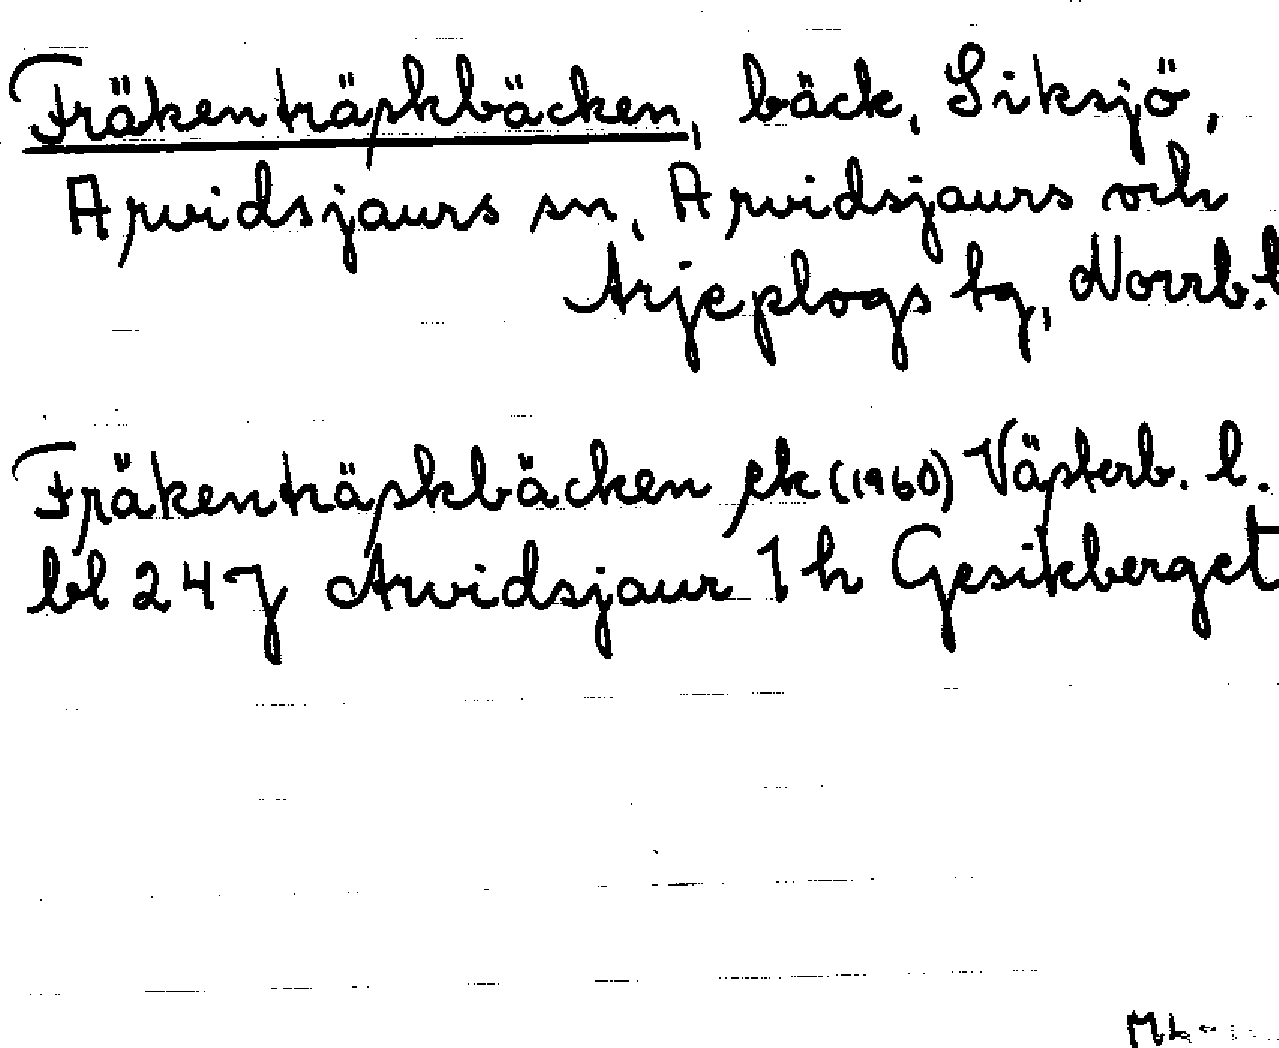 Fräkenträskbäcken, bäck, Siksjö,
Arvidsjaurs sn, Arvidsjaurs och
Arjeplogs tg, Norrb. l
Fräkenträskbäcken ek (1960) Västerb. l.
bl 24 J Arvidsjaur 1 h Gesikberget